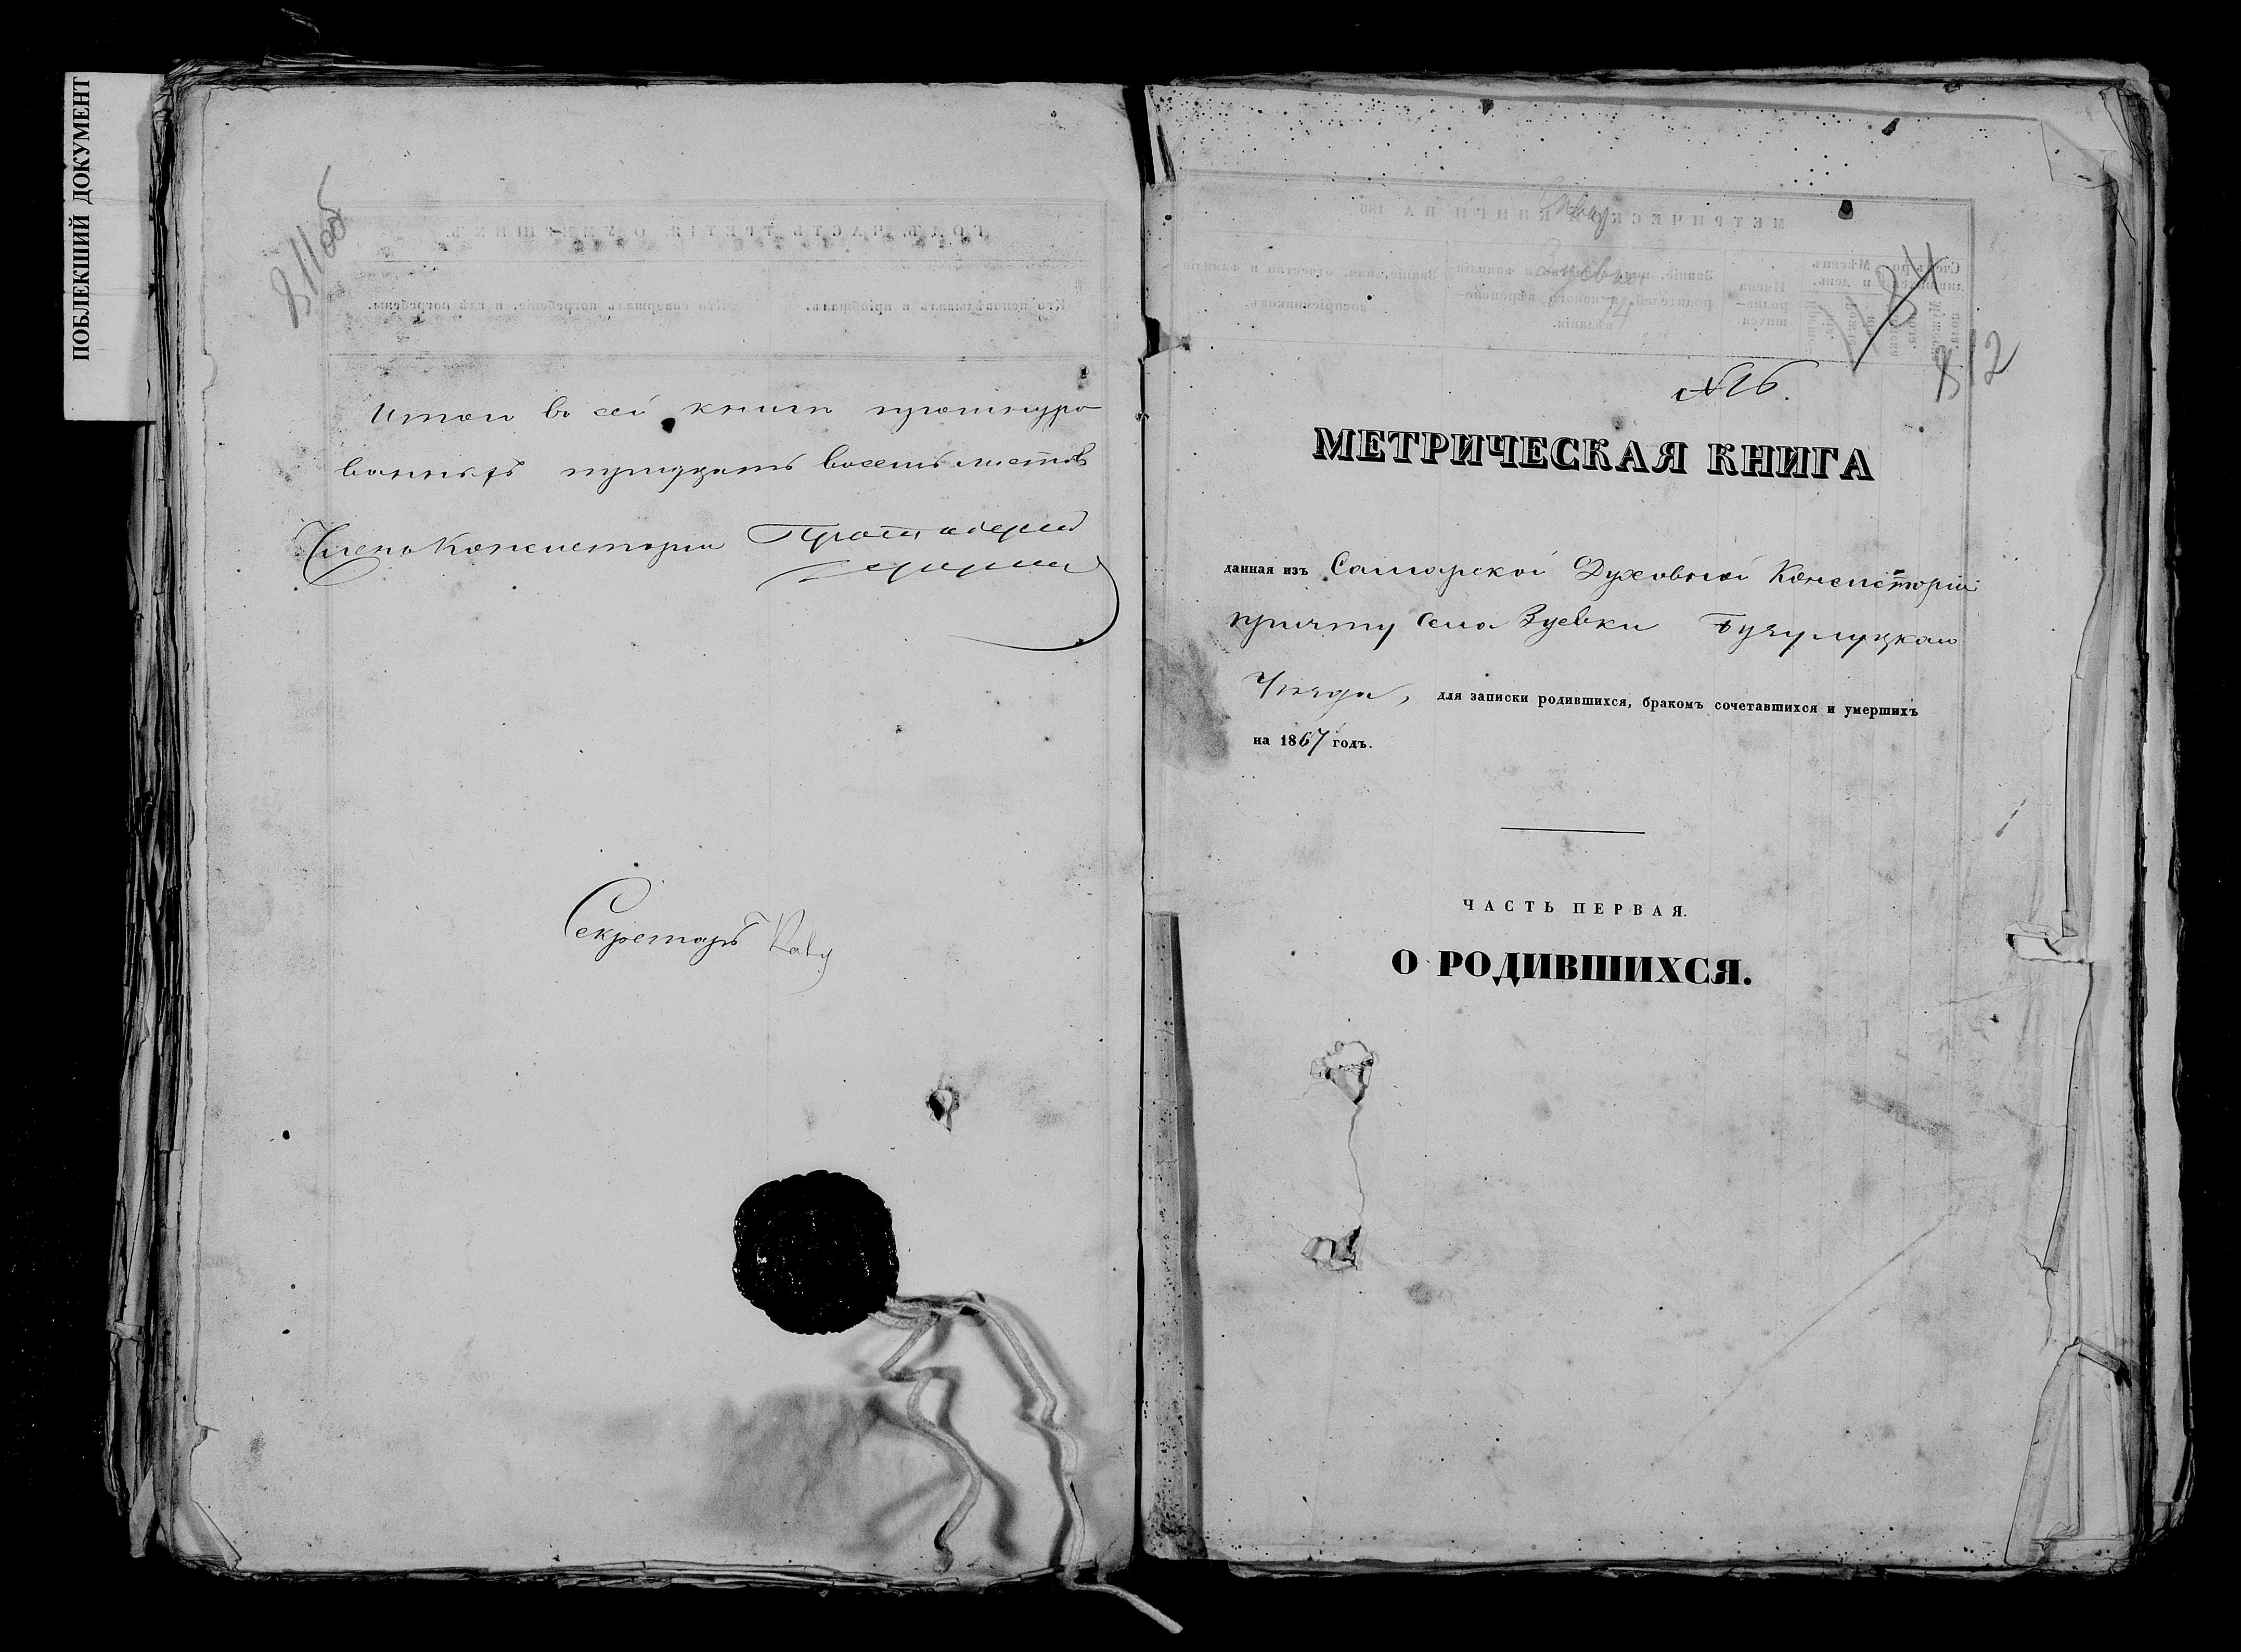 ПОБЛЕКШИЙ ДОКУМЕНТ
811об
Итого въ сей книги прошнуро
ванныхъ тридцать восемь листовъ
Членъ Консисторіи Протоіерей
Секретарь
Зуевка
74
812
№16.
МЕТРИЧЕСКАЯ КНИГА
данная изъ Самарской Духовной Консисторіи
причту села Зуевки Бузулуцкаго
Уѣзда, для записки родившихся, бракомъ сочетавшихся и умершихъ
на 1867 годъ.
ЧАСТЬ ПЕРВАЯ.
О РОДИВШИХСЯ.